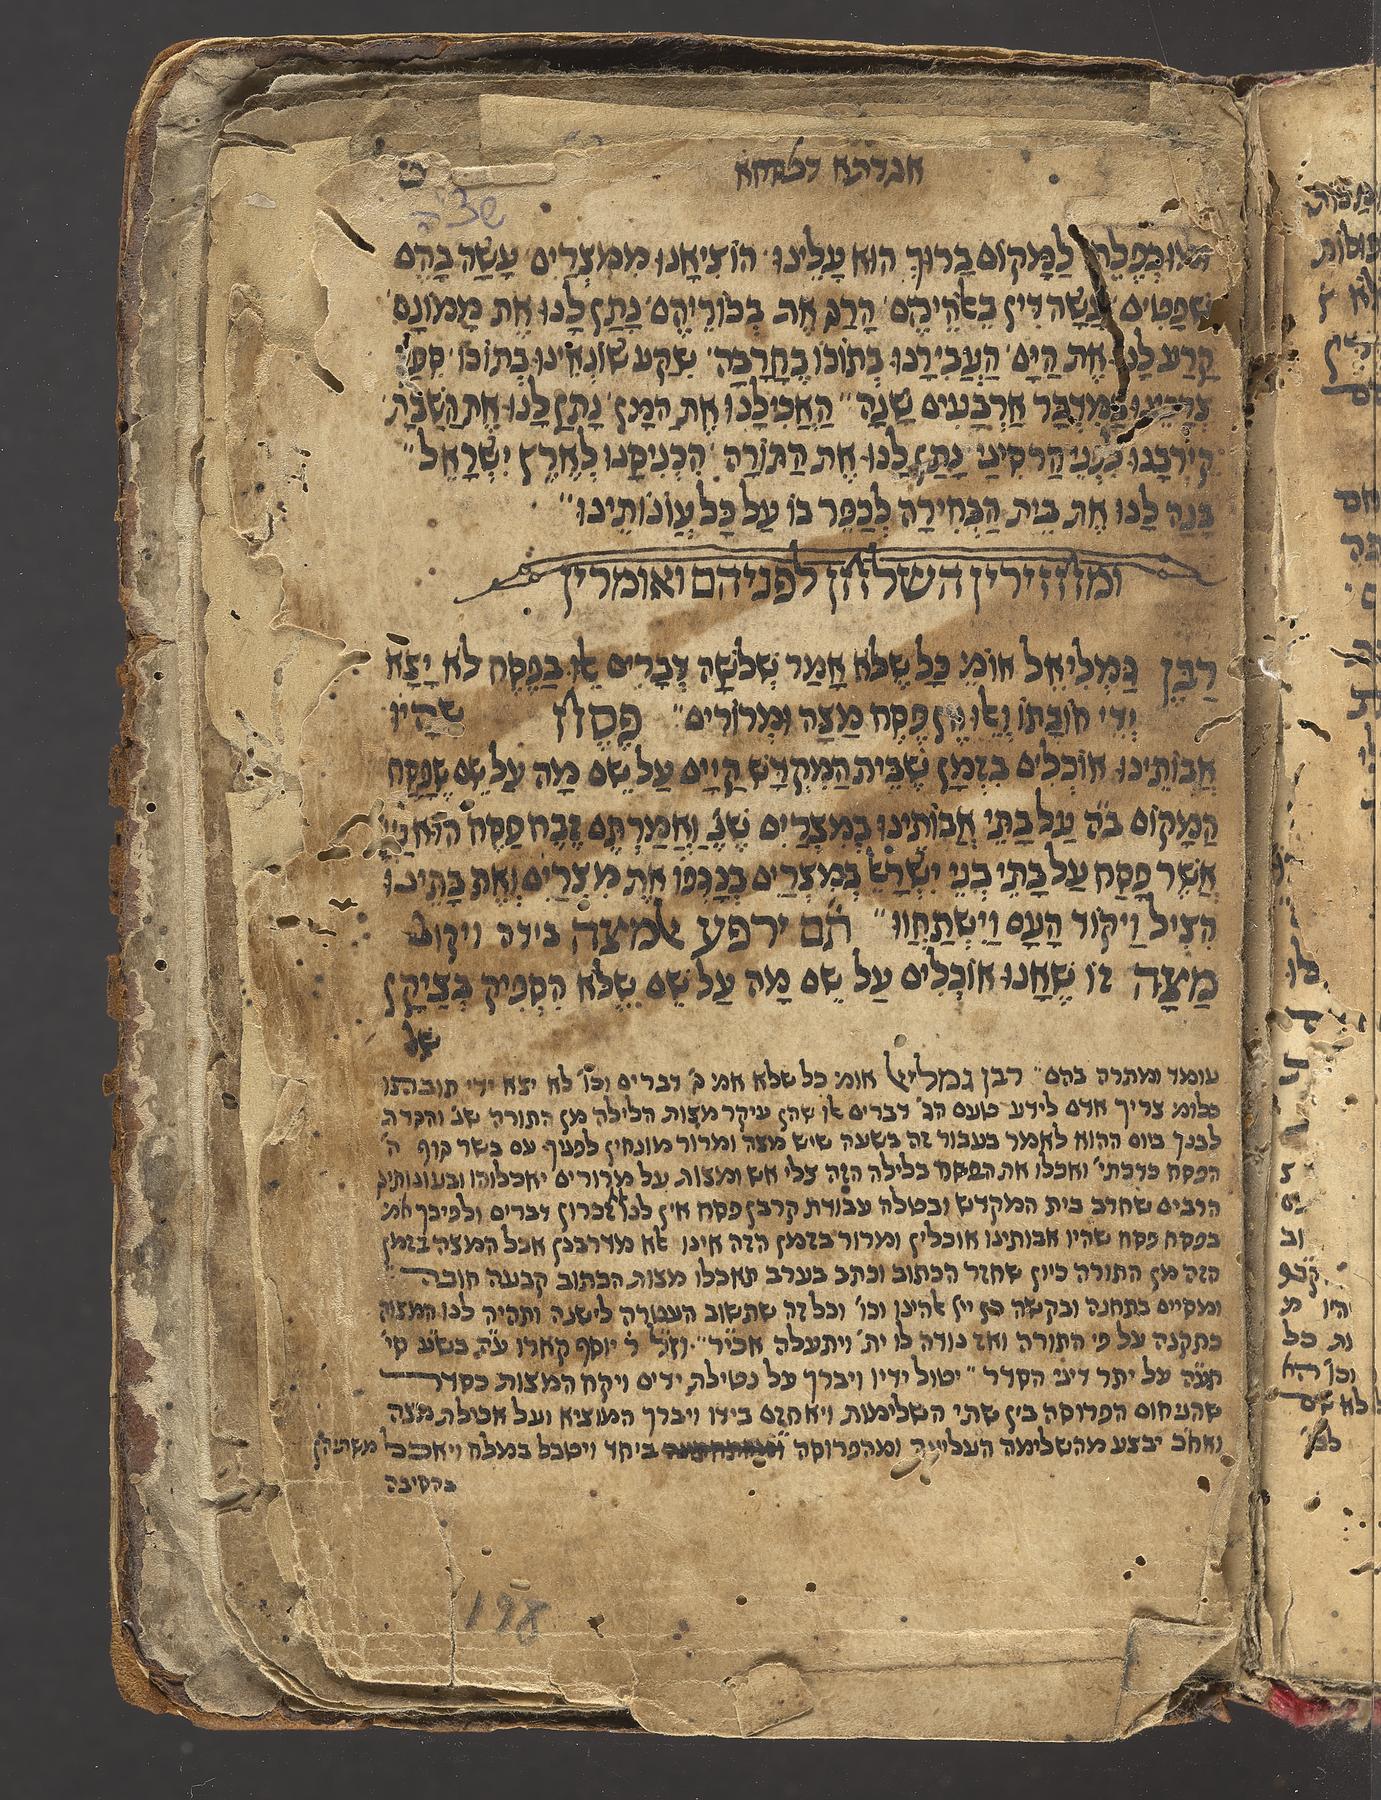 אגדתא דפסחא
שצ״ה
וכמה וכפלת למקום ברוך הוא עלינו׳ הוציאנו ממצרים׳ עשה בהם
שפטים׳ עשה דין באלהיהם׳ הרג את בכוריהם׳ נתן לנו את ממונם׳
קרע לנו את הים׳ העבירנו בתוכו בחרבה׳ שקע שונאינו בתוכו׳ ספק
צרכינו במדבר ארבעים שנה״ האכילנו את המן׳ נתן לנו את השבת׳
קירבנו לפני הר סיני׳ נתן לנו את התורה׳ הכניסנו לארץ ישראל״
בנה לנו את בית הבחירה לכפר בו על כל עונותינו״
ומחזירין השלחן לפניהם ואומרין
רבן גמליאל אומ׳ כל שלא אמר שלשה דברים אלו בפסח לא יצא
ידי חובתו ואלו הן פסח מצה ומרורים״ פסח שהיו
אבותינו אוכלים בזמן שבית המקדש קיים על שם מה על שם שפסח
המקום ב״ה על בתי אבותינו במצרים שנ׳ ואמרתם זבח פסח הוא ליי׳
אשר פסח על בתי בני ישראל במצרים בנגפו את מצרים ואת בתינו
הציל ויקוד העם וישתחוו״ תם ירפע המצה בידו ויקול
מצה זו שאנו אוכלים על שם מה על שם שלא הספיק בציקן
של
עומד ומתרה בהם״ רבן גמליאל אומ׳ כל שלא אמ׳ ג׳ דברים וכו׳ לא יצא ידי חובתו
כלומ׳ צריך אדם לידע טעם הג׳ דברים אלו שהן עיקר מצות הלילה מן התורה שנ׳ והגדת
לבנך ביום ההוא לאמר בעבור זה בשעה שיש מצה ומרור מונחין לפניך עם בשר
הפסח כדכתי׳ ואכלו את הבשר בלילה הזה צלי אש ומצות על מרורים יאכלוהו ובעונותינו
הרבים שחרב בית המקדש ובטלה עבודת קרבן פסח אין לנו זכרון דברים ולפיכך אמ׳
בפסח פסח שהיו אבותינו אוכלין ומרור בזמן הזה אינו אלא מדרבנן אבל המצה בזמן
הזה מן התורה כיון שחזר הכתוב וכתב בערב תאכלו מצות הכתוב קבעה חובה
ומסיים בתחנה ובקשה כן יי׳ אלהינו וכו׳ וכל זה שתשוב העטרה לישנה ותהיה לנו המצוה
כתקנה על פי התורה ואז נודה לו ית׳ ויתעלה אכי״ר״ וז״ל ר׳ יוסף קארו ע״ה בש״ע סי׳
תע״ה על יתר דיני הסדר״ יטול ידיו ויברך על נטילת ידים ויקח המצות כסדר
שהניחום הפרוסה בין שתי השלימות ויאחזם בידו ויברך המוציא ועל אכילת מצה
ואח״כ יבצע מהשלימה העליונה ומהפרוסה ביחד ויטבל במלח ויאכל משתיהן
בהסיבה
198